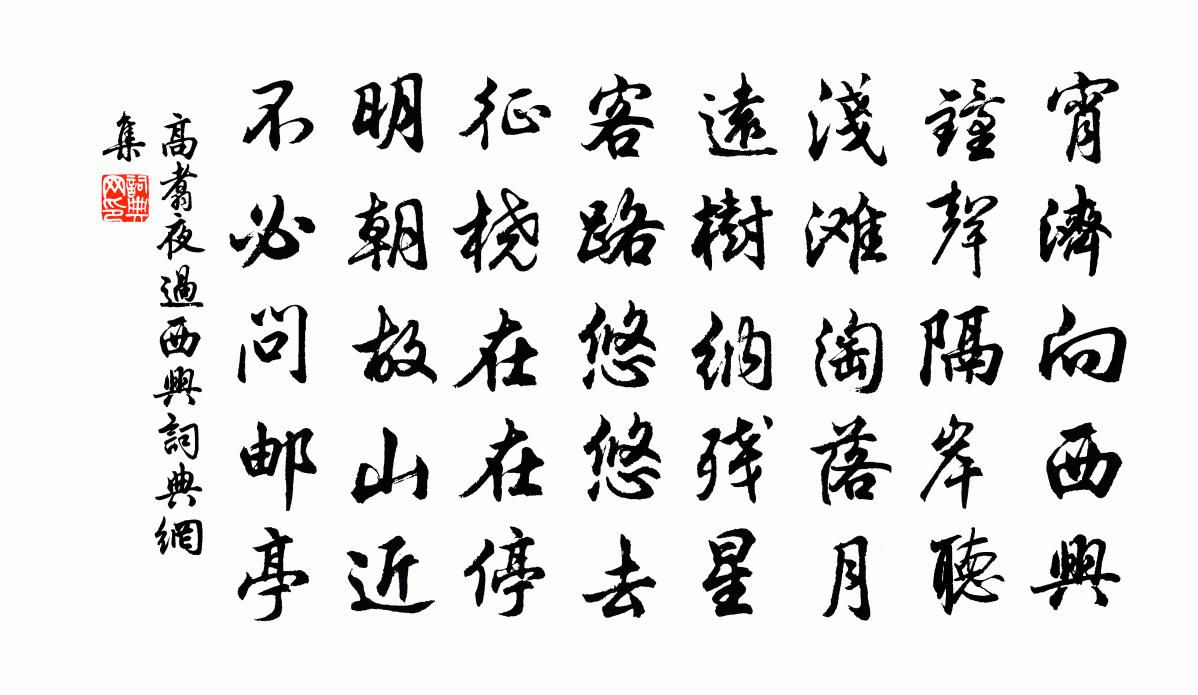 宵濟向西興
鐘聲隔岸聽
淺滩淘落月
遠樹纳残星
客路悠悠去
征桡在在停
明朝故山近
不必问邮亭
高翥夜過西興詞典網
集
詞典
网印